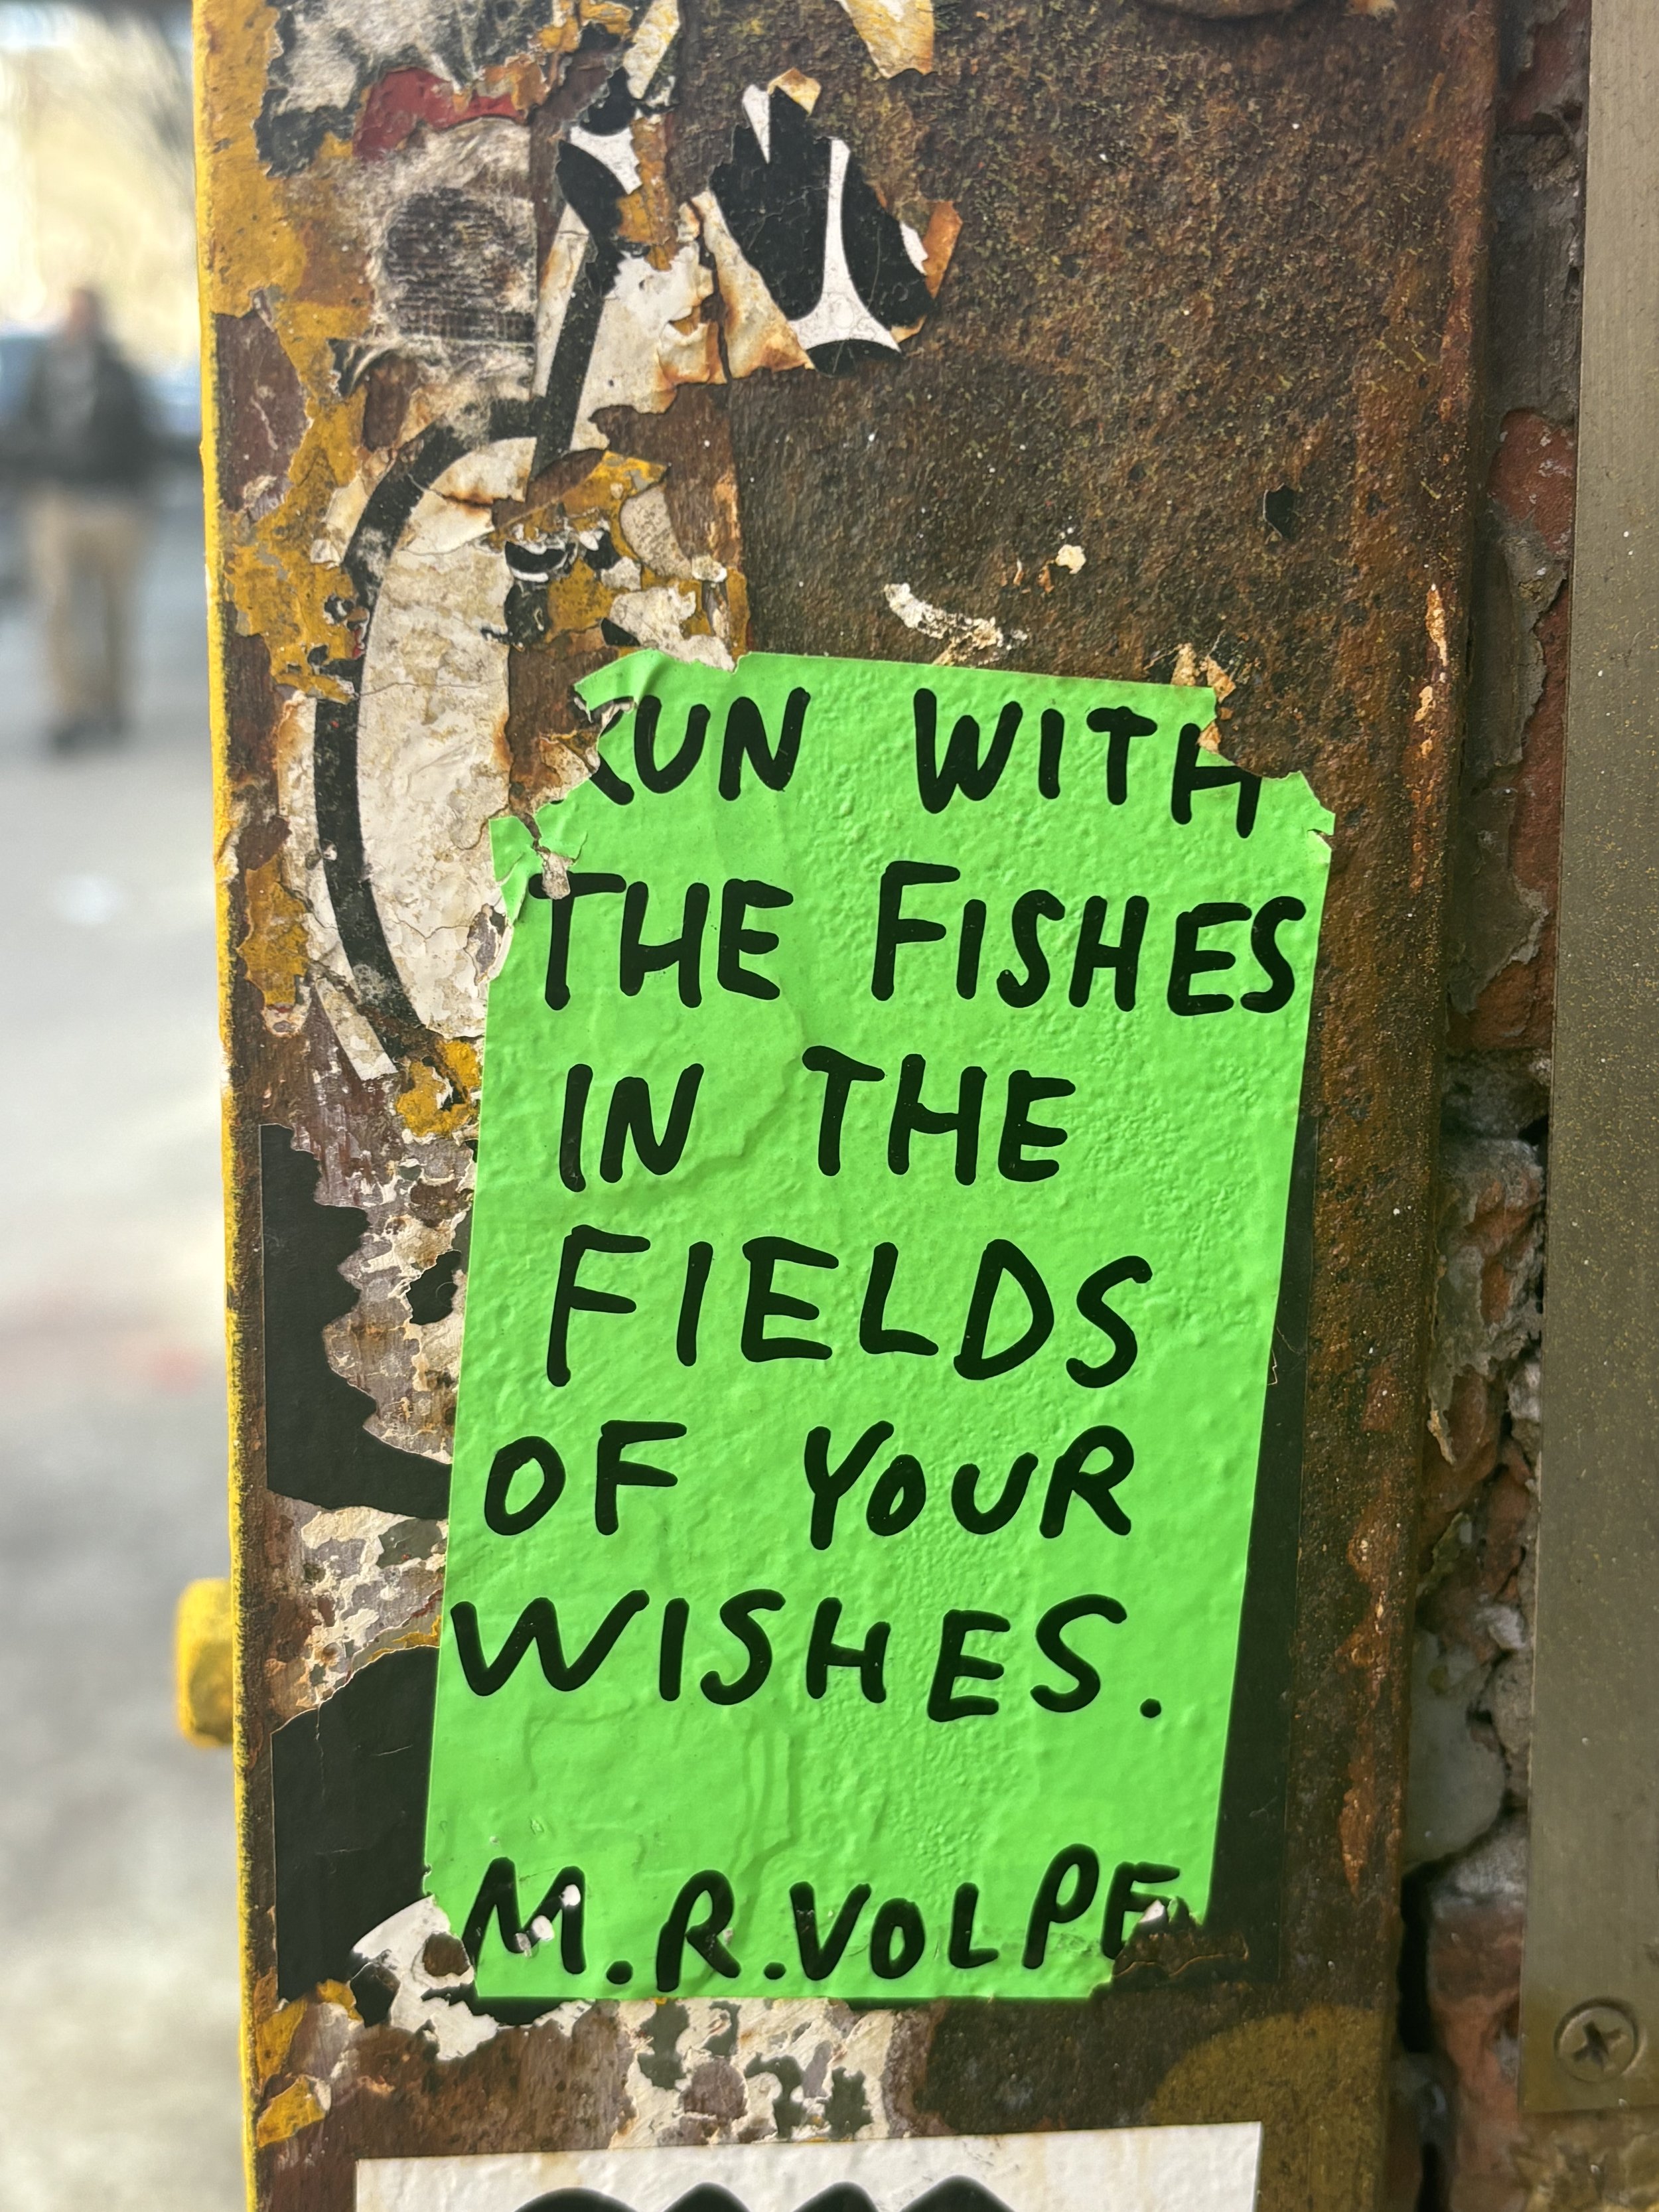 RUN WITH
THE FISHES
IN THE
FIELDS
OF YOUR
WISHES.
M.R.VOLPE